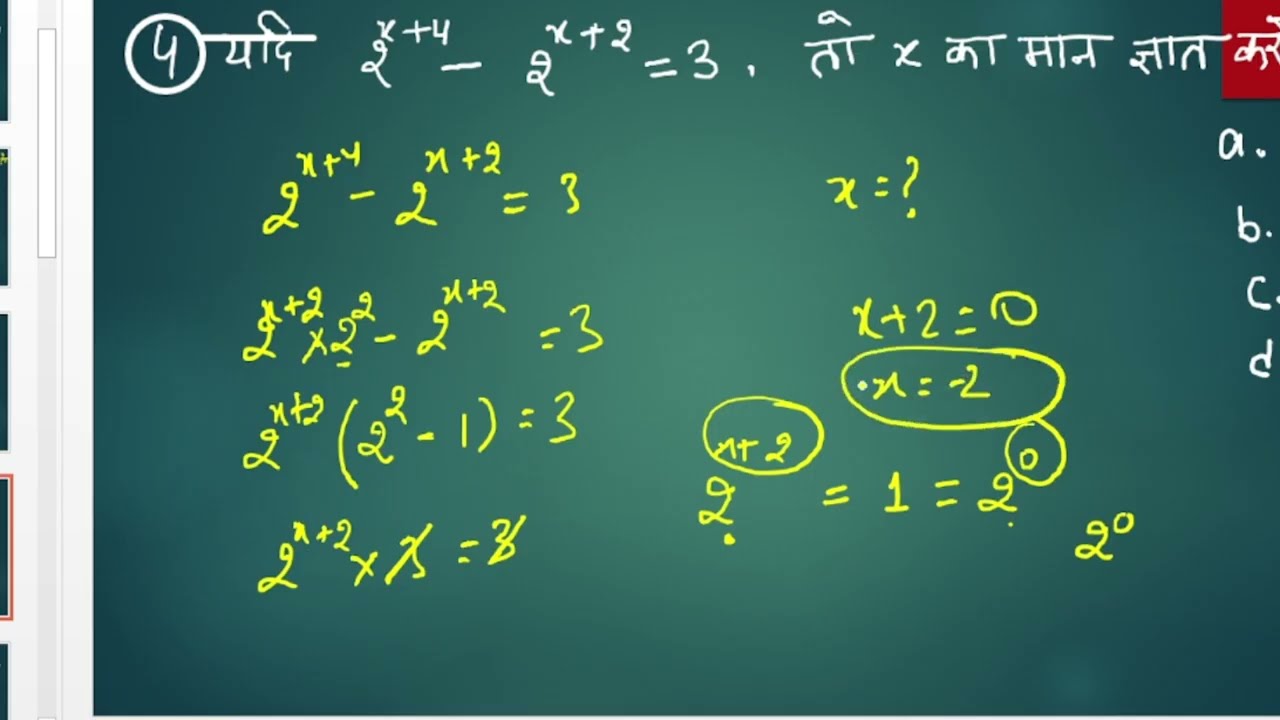 4 यदि 2^{x+4} - 2^{x+2} = 3, तो x का मान ज्ञात करें
a.
b.
c.
d
2^{x+4} - 2^{x+2} = 3
x = ?
2^{x+2} × 2^2 - 2^{x+2} = 3
x+2 = 0
x = -2
2^{x+2} (2^2 - 1) = 3
2^{x+2} = 1 = 2^0
2^0
2^{x+2} × 3 = 3